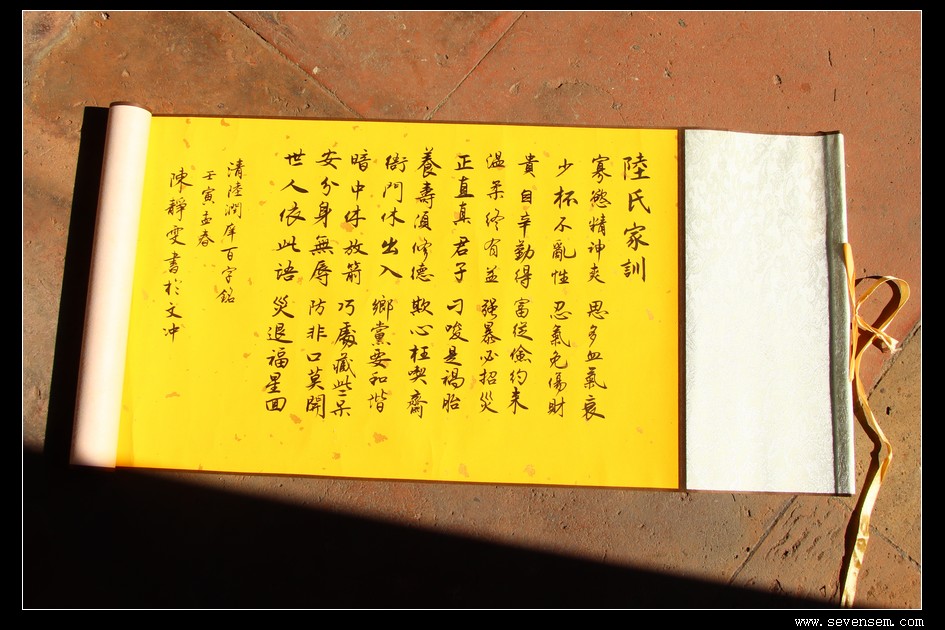 陸氏家訓
寡慾精神爽 思多血氣衰
少杯不亂性 忍氣免傷財
貴自辛勤得 富從儉約来
溫柔終有益 强暴必招災
正直真君子 刁唆是禍胎
養壽須修德 欺心枉喫齋
衙門休出入 鄉黨要和諧
暗中休放箭 巧處藏些呆
安分身無辱 防非口莫開
世人依此語 災退福星回
清陸潤庠百字銘
壬寅孟春
陳靜雯書於文冲
www.sevensem.com